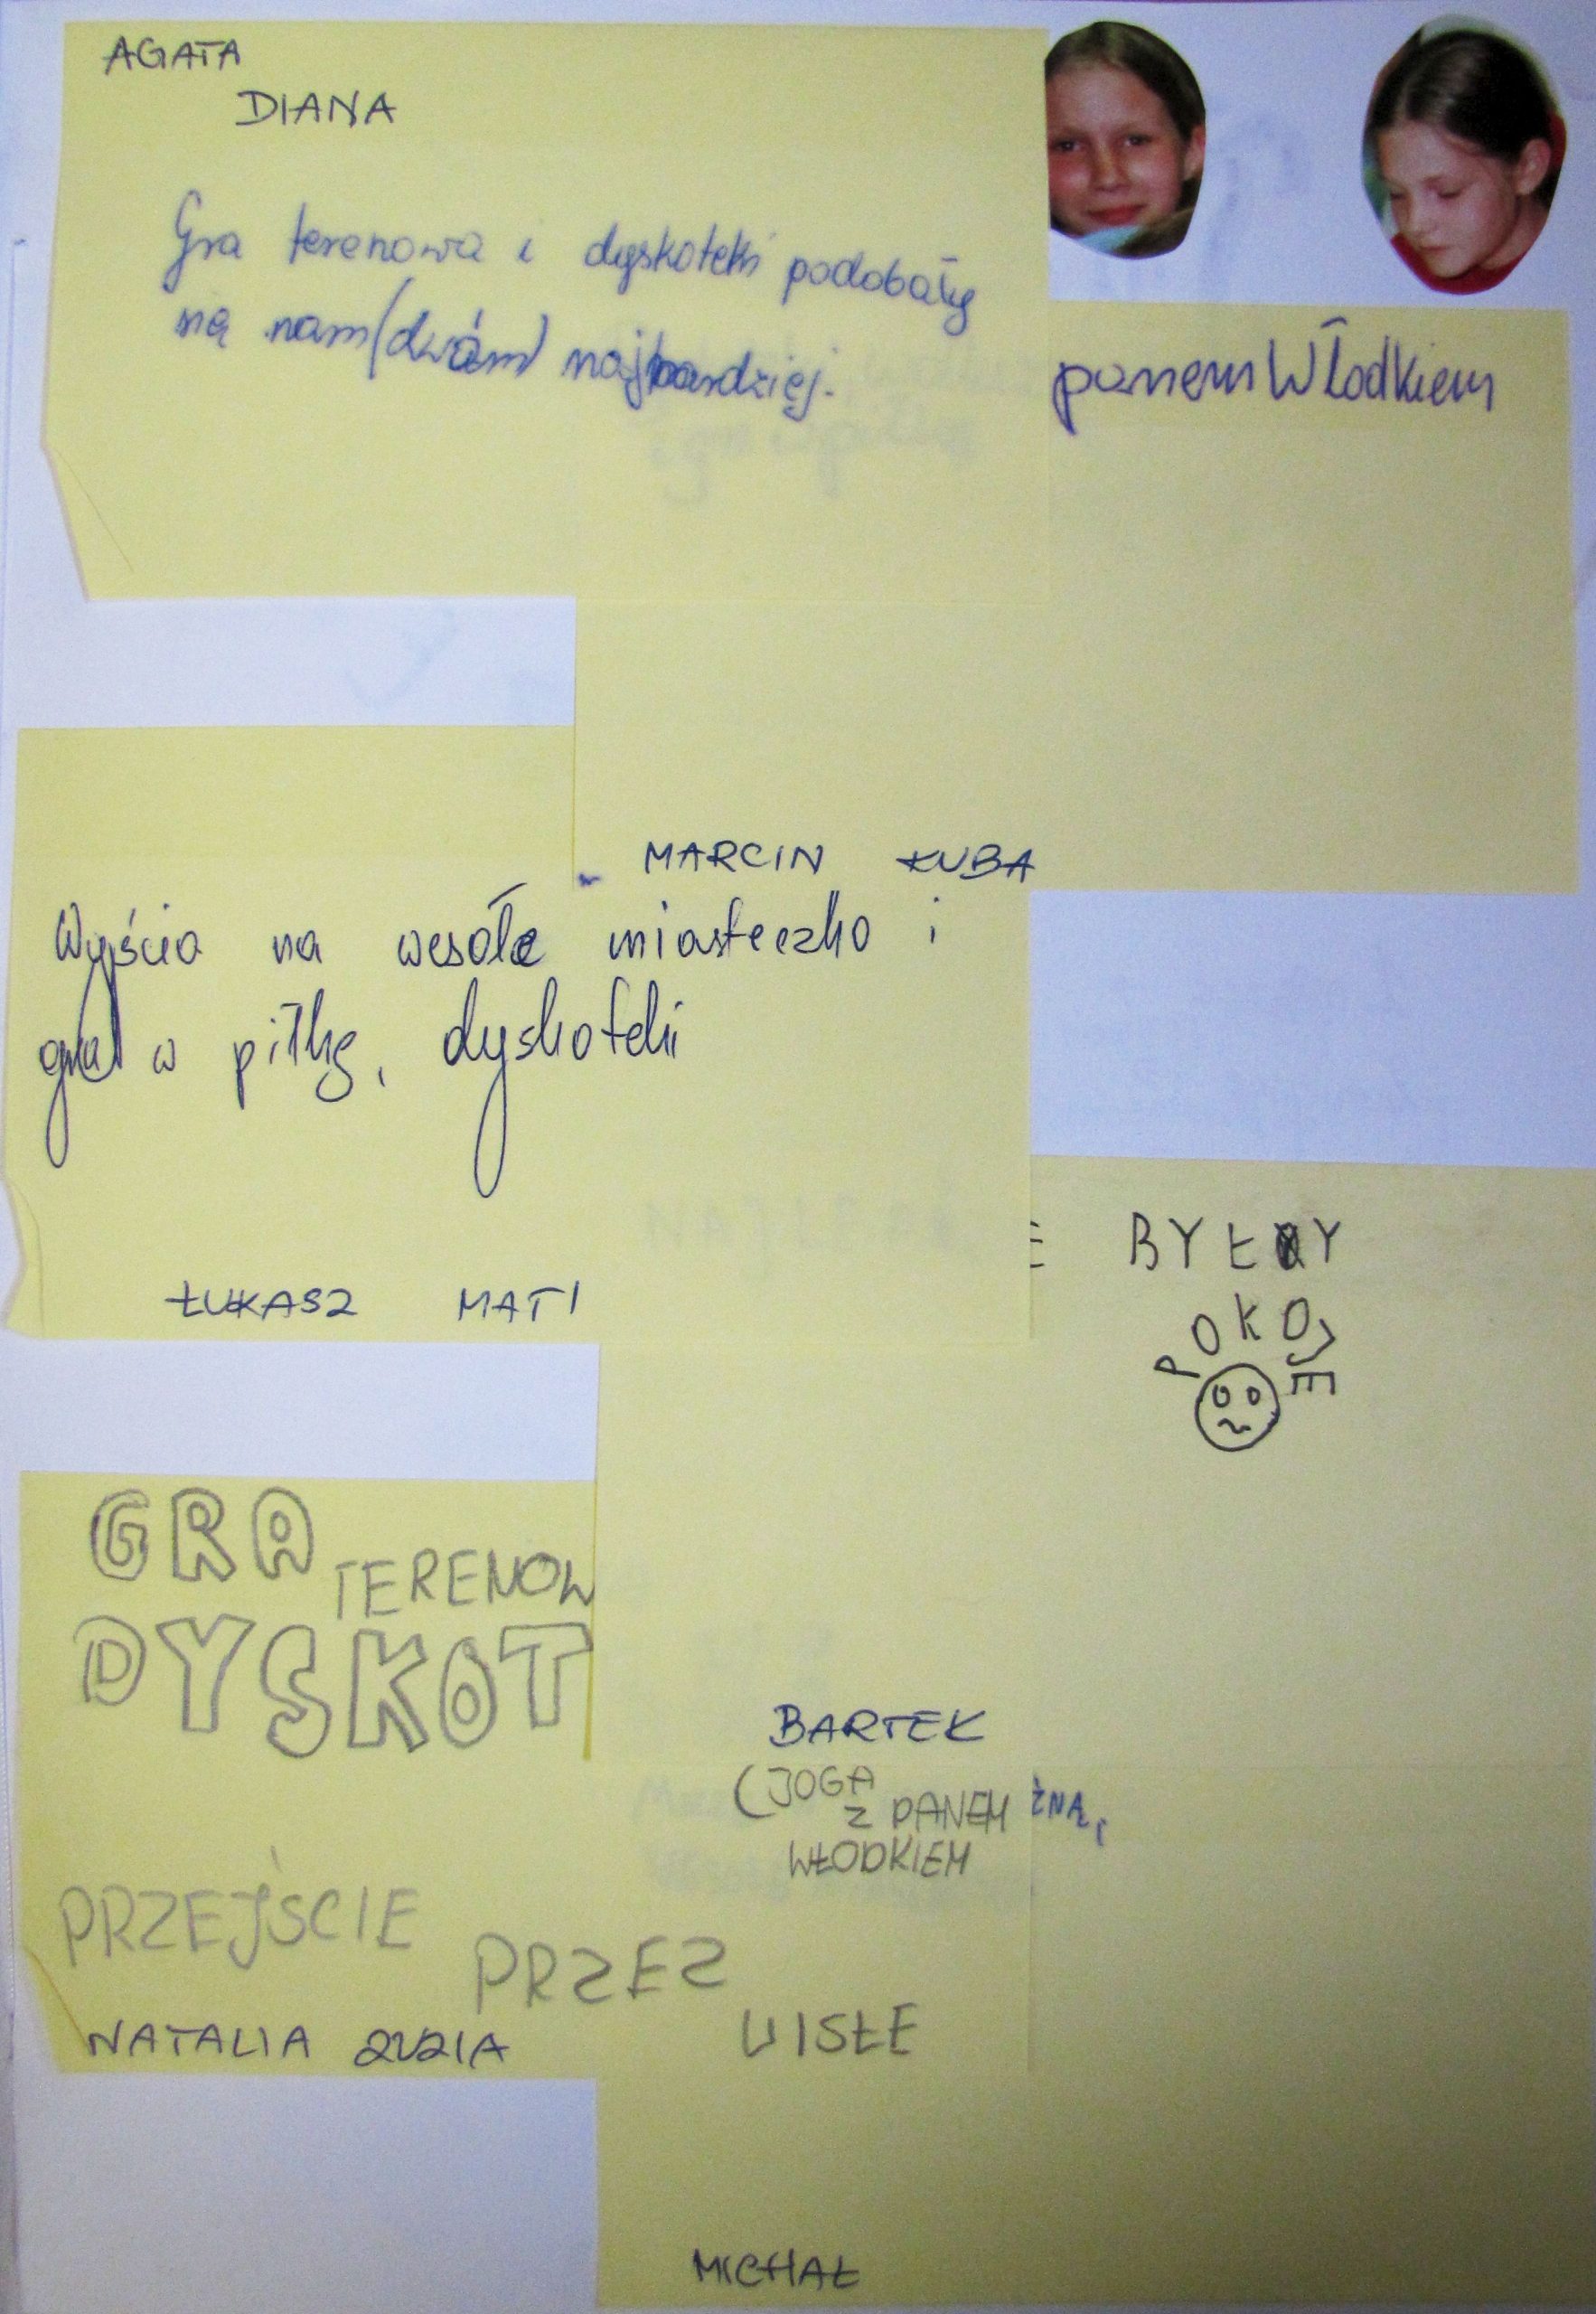 AGATA
DIANA
Gra terenowa i dyskoteki podobały
się nam (dwóm) najbardziej.
panem Włodkiem
MARCIN KUBA
Wyjścia na wesołe miasteczko i
gra w piłkę, dyskoteki
ŁUKASZ MATI
E BYŁY
POKOJE
GRA
TERENOW
DYSKOT
BARTEK
(JOGA
Z PANEM
WŁODKIEM
ŻNĄ,
PRZEJŚCIE
PRZEZ
WISŁE
NATALIA ZUZIA
MICHAŁ